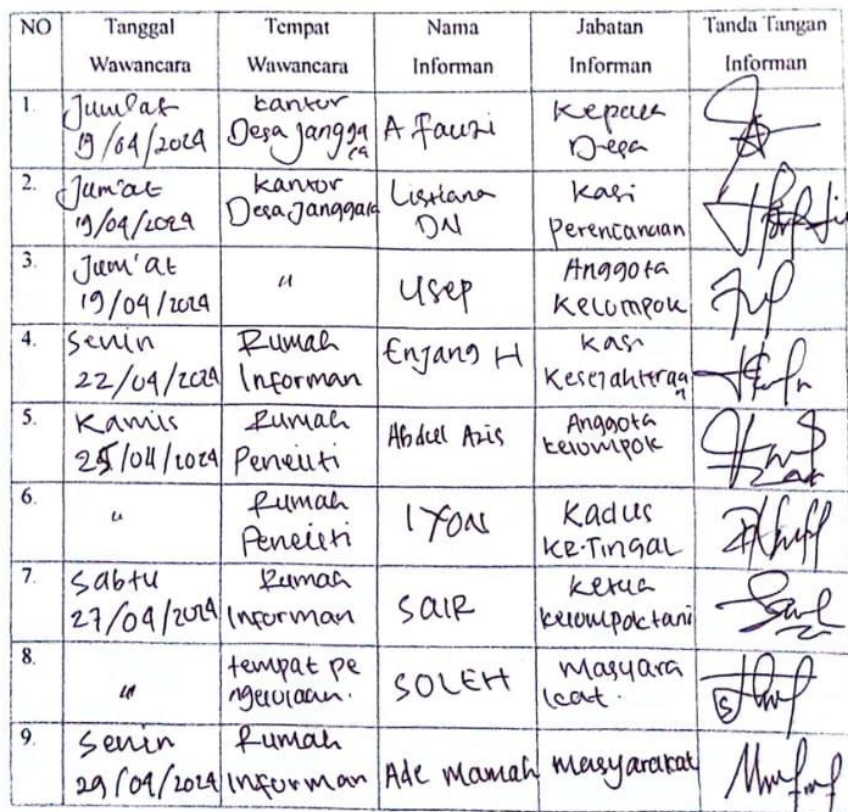 NO Tanggal Wawancara Tempat Wawancara Nama Informan Jabatan Informan Tanda Tangan Informan
1. Jum'at 19/04/2024 kantor Desa Janggala A Fauzi Kepala Desa
2. Jum'at 19/04/2024 kantor Desa Janggala Listiana DN Kasi Perencanaan
3. Jum'at 19/04/2024 " Usep Anggota Kelompok
4. Senin 22/04/2024 Rumah Informan Enjang H Kasi Kesejahteraan
5. Kamis 25/04/2024 Rumah Peneliti Abdul Azis Anggota kelompok
6. " Rumah Peneliti IYON Kadus
7. Sabtu 27/04/2024 Rumah Informan SAIR ketua kelompok tani
8. " tempat pengelolaan. SOLEH Masyarakat.
9. Senin 29/04/2024 Rumah Informan Ade Mamah Masyarakat